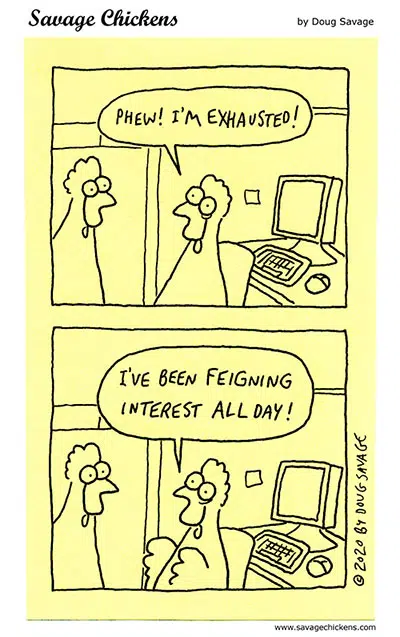 Savage Chickens
by Doug Savage
PHEW! I'M EXHAUSTED!
I'VE BEEN FEIGNING
INTEREST ALL DAY!
© 2020 BY DOUG SAVAGE
www.savagechickens.com